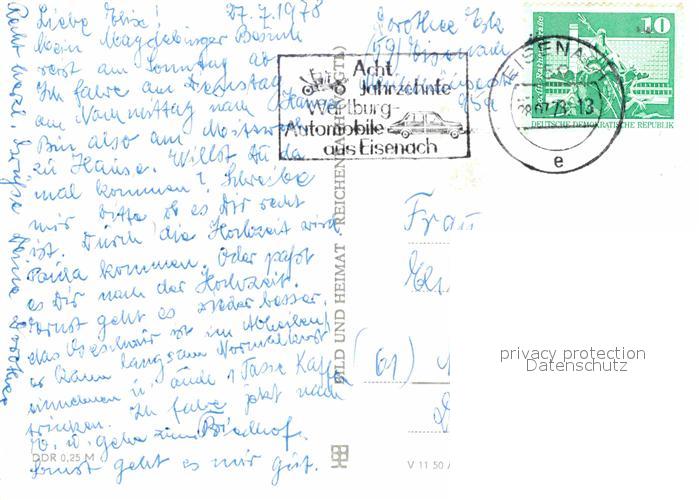 27.7.1978
Liebe Elise!
Mein Magdeburger Besuch
reist am Sonntag ab
Ich fahre am Dienstag
am Vormittag nach
Bin also am
zu Hause. Willst Du da
mal kommen? Schreibe
mir bitte ob es Dir recht
ist. Durch die Hochzeit wird
kommen. Oder paßt
es Dir nach der Hochzeit.
Ernst geht es wieder besser.
das Geschwür ist im Abheilen,
er kann langsam Normalkost
einnehmen u. auch 1 Tasse Kaffee
trinken. Ich fahre jetzt nach
W. u. gehe zum Friedhof.
Sonst geht es mir gut.
Recht herzl. Grüße Deine Dorothea
DDR 0,25 M
BILD UND HEIMAT REICHENBACH (VOGTL)
V 11 50 /
Dorothea
(59) Eisenach
Acht
Jahrzehnte
Wartburg-
Automobile
aus Eisenach
EISENACH
-13
e
10
DEUTSCHE DEMOKRATISCHE REPUBLIK
Frau
(61)
privacy protection
Datenschutz